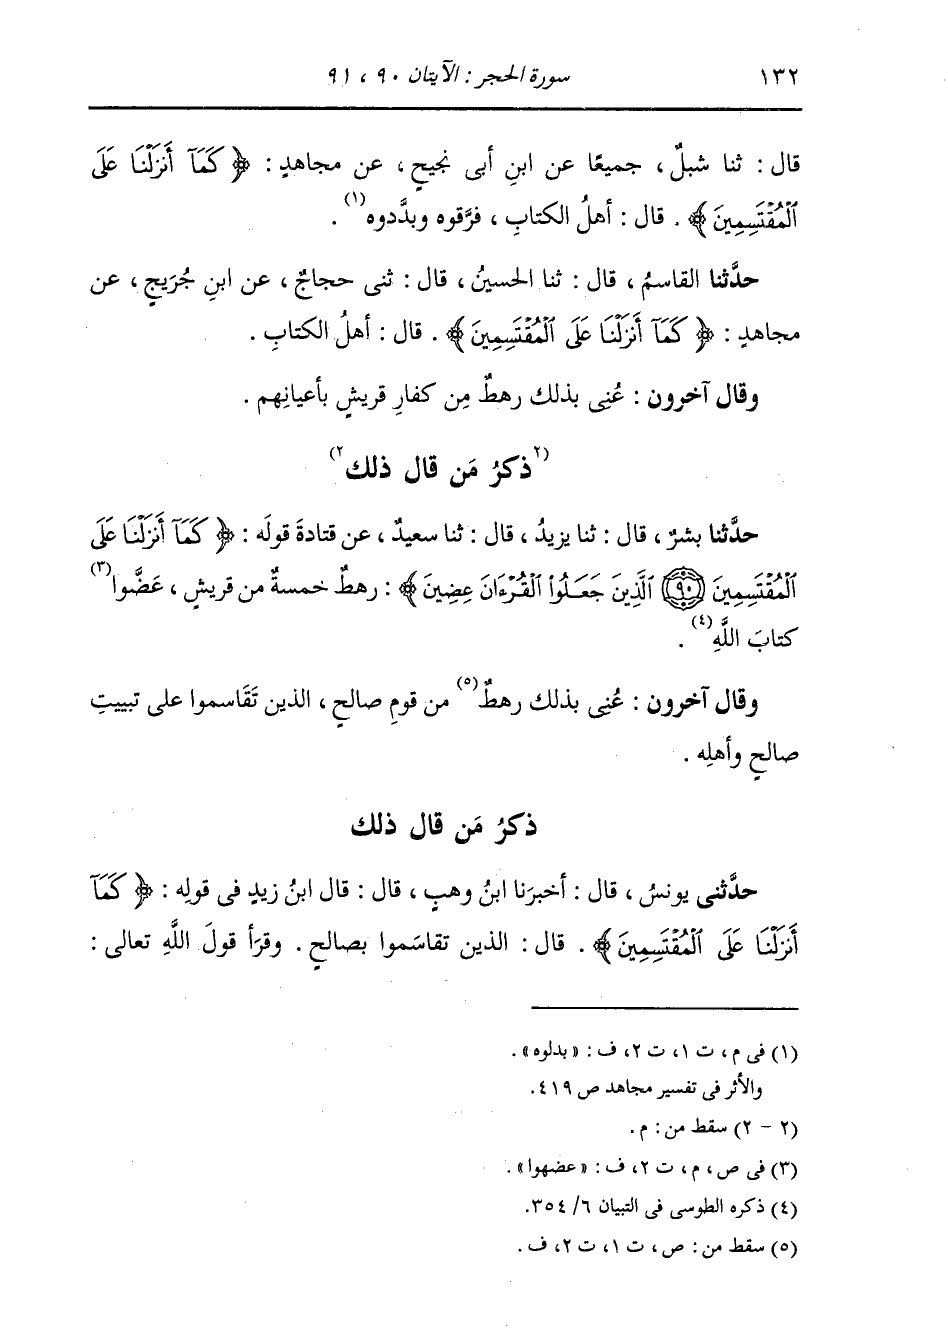 ١٣٢ سورة الحجر : الآيتان ٩٠ ، ٩١
قال : ثنا شبلٌ ، جميعًا عن ابنِ أبى نجيحٍ ، عن مجاهدٍ : ﴿ كَمَآ أَنزَلْنَا عَلَى
ٱلْمُقْتَسِمِينَ ﴾ . قال : أهلُ الكتابِ ، فرَّقوه وبدَّدوه(١) .
حدَّثنا القاسمُ ، قال : ثنا الحسينُ ، قال : ثنى حجاجٌ ، عن ابنِ جُرَيجٍ ، عن
مجاهدٍ : ﴿ كَمَآ أَنزَلْنَا عَلَى ٱلْمُقْتَسِمِينَ ﴾ . قال : أهلُ الكتابِ .
وقال آخرون : عُنِى بذلك رهطٌ مِن كفارِ قريشٍ بأعيانِهم .
(٢ذكرُ مَن قال ذلك٢)
حدَّثنا بشرٌ ، قال : ثنا يزيدُ ، قال : ثنا سعيدٌ ، عن قتادةَ قولَه : ﴿ كَمَآ أَنزَلْنَا عَلَى
ٱلْمُقْتَسِمِينَ ۝٩٠ ٱلَّذِينَ جَعَلُوا۟ ٱلْقُرْءَانَ عِضِينَ ﴾ : رهطٌ خمسةٌ من قريشٍ ، عَضَّوا(٣)
كتابَ اللَّهِ(٤) .
وقال آخرون : عُنِى بذلك رهطٌ(٥) من قومِ صالحٍ ، الذين تَقَاسموا على تبييتِ
صالحٍ وأهلِه .
ذكرُ مَن قال ذلك
حدَّثنى يونسُ ، قال : أخبرَنا ابنُ وهبٍ ، قال : قال ابنُ زيدٍ فى قولِه : ﴿ كَمَآ
أَنزَلْنَا عَلَى ٱلْمُقْتَسِمِينَ ﴾ . قال : الذين تقاسَموا بصالحٍ . وقرَأ قولَ اللَّهِ تعالى :
(١) فى م ، ت ١، ت ٢، ف : « بدلوه » .
والأثر فى تفسير مجاهد ص ٤١٩.
(٢ - ٢) سقط من : م .
(٣) فى ص ، م ، ت ٢، ف : « عضهوا » .
(٤) ذكره الطوسى فى التبيان ٦/ ٣٥٤.
(٥) سقط من : ص ، ت ١، ت ٢، ف .